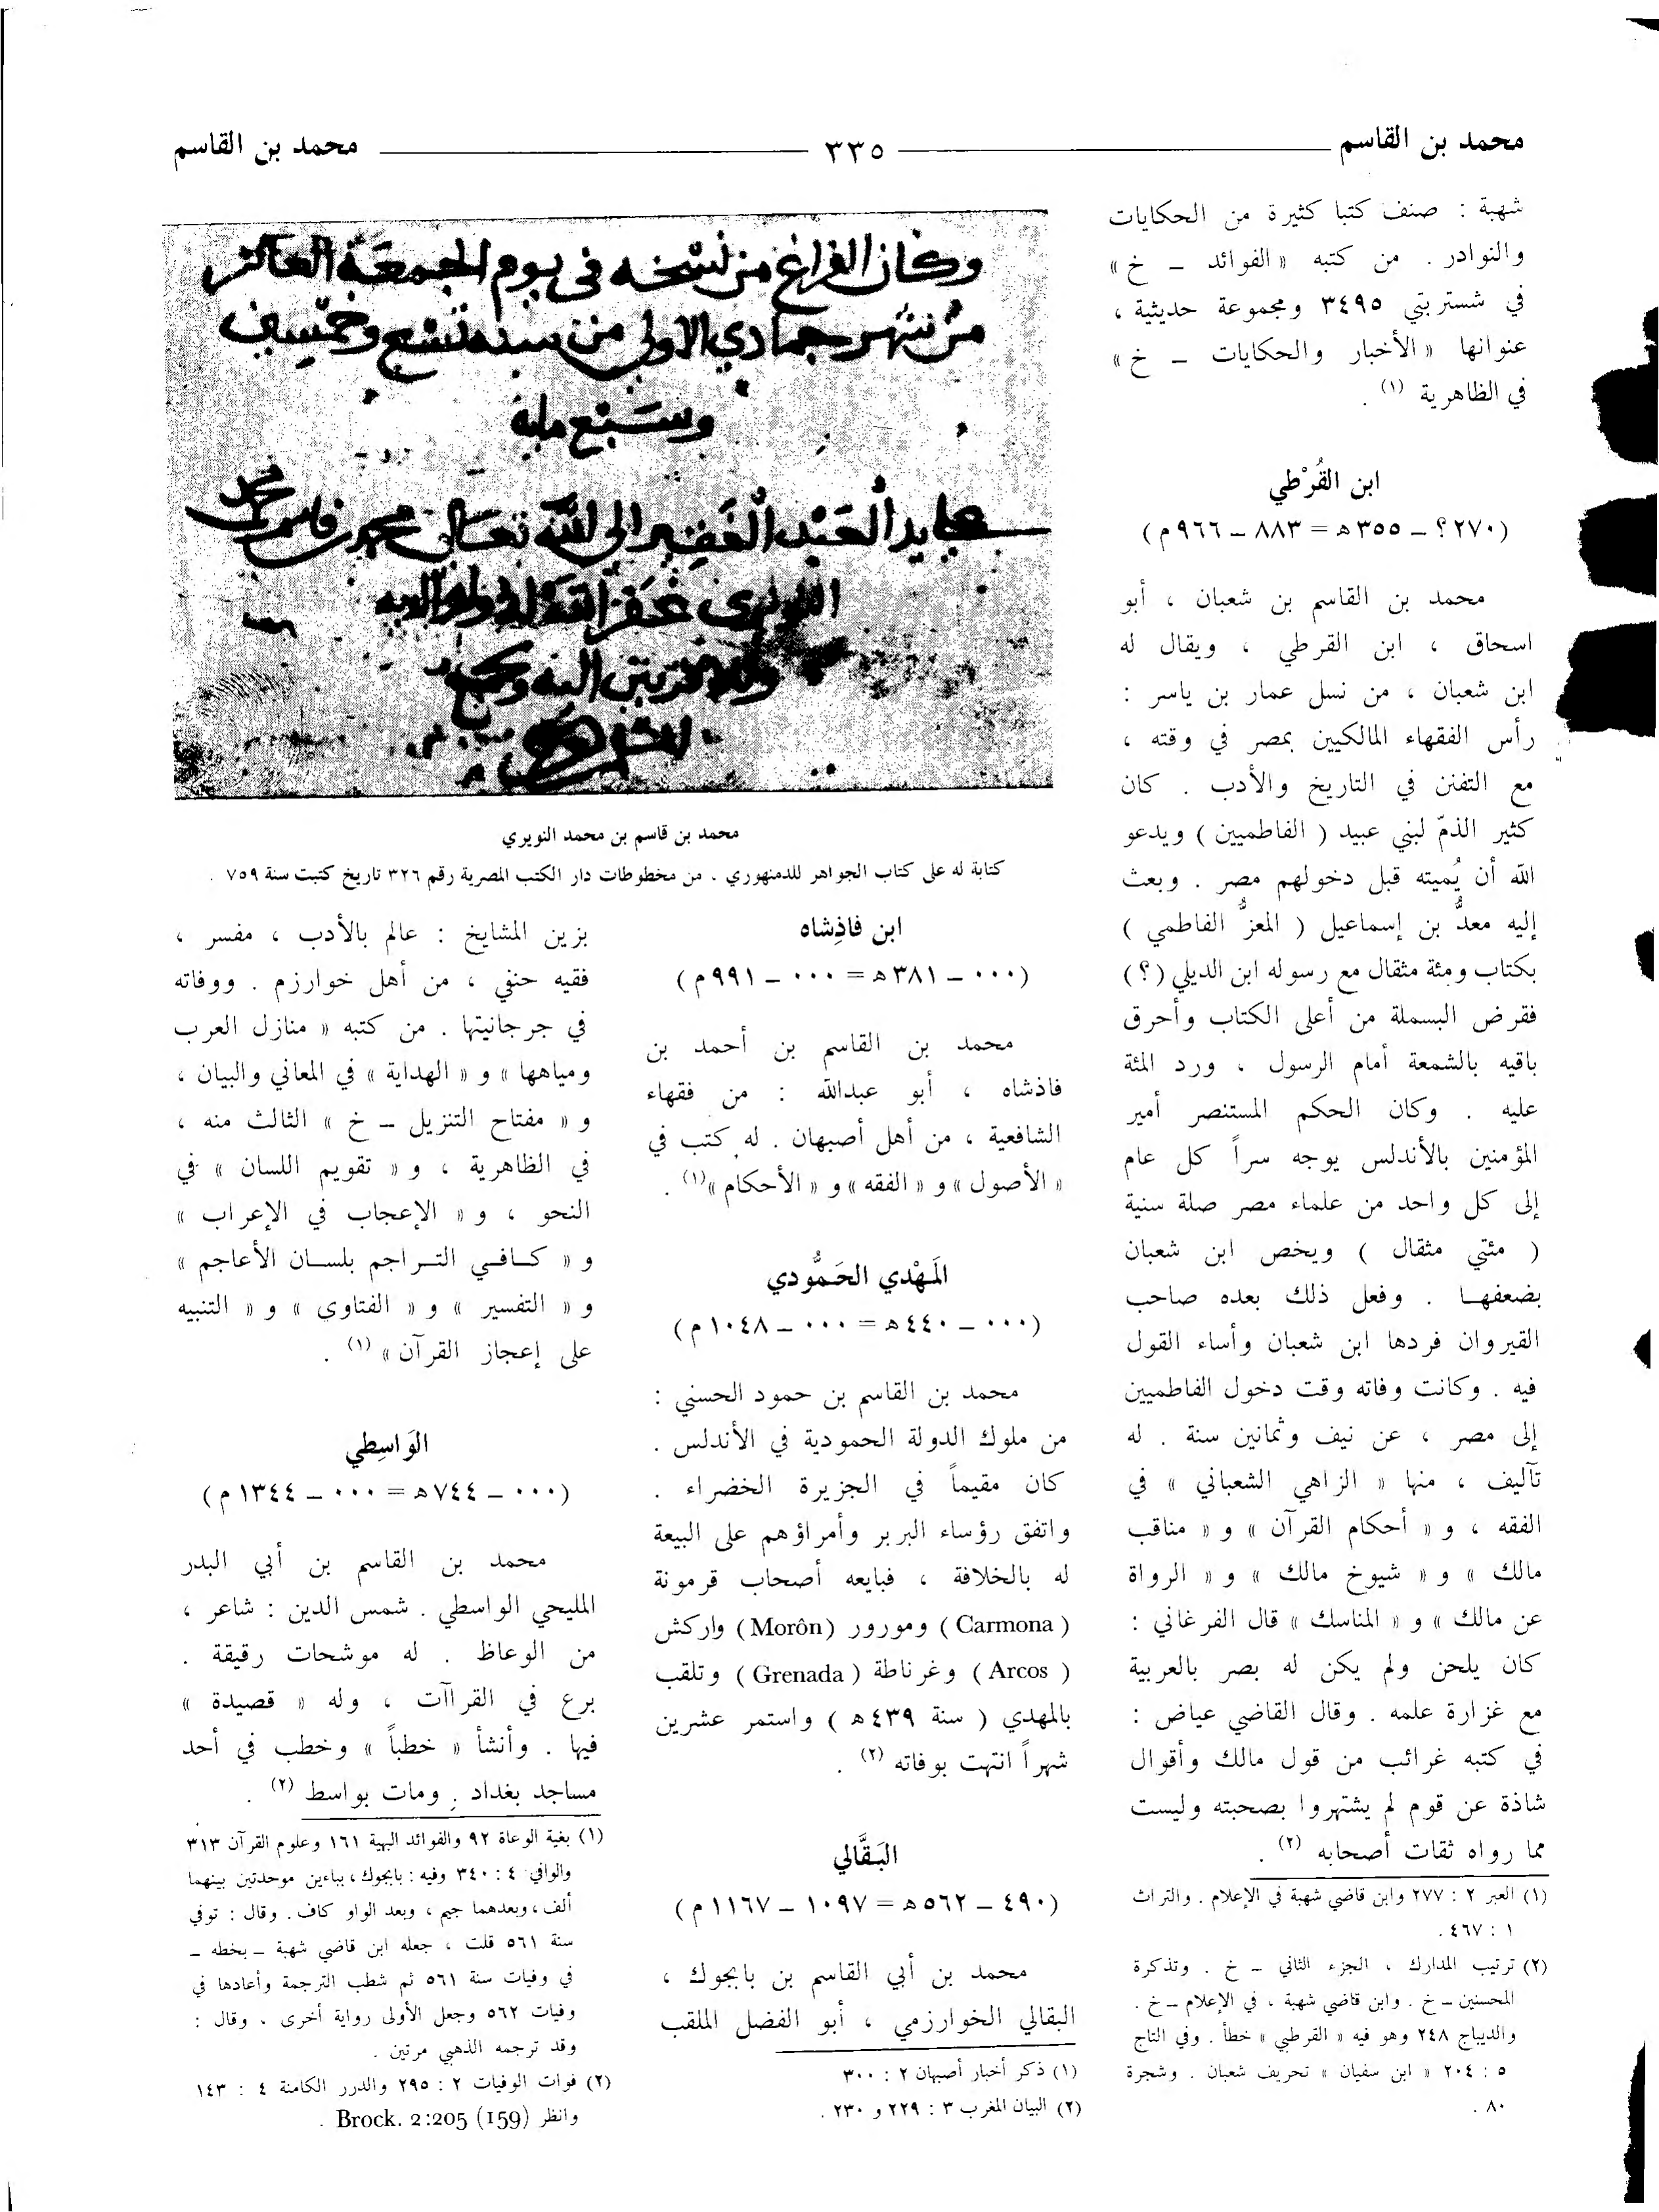 محمد بن القاسم ٣٣٥ محمد بن القاسم
شهبة : صنف كتبا كثيرة من الحكايات
والنوادر . من كتبه « الفوائد ــ خ »
في شستربتي ٣٤٩٥ ومجموعة حديثية ،
عنوانها « الأخبار والحكايات ــ خ »
في الظاهرية (١) .
ابن القُرْطي
(٢٧٠؟ ــ ٣٥٥ ه = ٨٨٣ ــ ٩٦٦ م)
محمد بن القاسم بن شعبان ، أبو
اسحاق ، ابن القرطي ، ويقال له
ابن شعبان ، من نسل عمار بن ياسر :
رأس الفقهاء المالكيين بمصر في وقته ،
مع التفنن في التاريخ والأدب . كان
كثير الذمّ لبني عبيد ( الفاطميين ) ويدعو
الله أن يُميته قبل دخولهم مصر . وبعث
إليه معدُّ بن إسماعيل ( المعزُّ الفاطمي )
بكتاب ومئة مثقال مع رسوله ابن الديلي (؟)
فقرض البسملة من أعلى الكتاب وأحرق
باقيه بالشمعة أمام الرسول ، ورد المئة
عليه . وكان الحكم المستنصر أمير
المؤمنين بالأندلس يوجه سراً كل عام
إلى كل واحد من علماء مصر صلة سنية
( مئتي مثقال ) ويخص ابن شعبان
بضعفها . وفعل ذلك بعده صاحب
القيروان فردها ابن شعبان وأساء القول
فيه . وكانت وفاته وقت دخول الفاطميين
إلى مصر ، عن نيف وثمانين سنة . له
تآليف ، منها « الزاهي الشعباني » في
الفقه ، و « أحكام القرآن » و « مناقب
مالك » و « شيوخ مالك » و « الرواة
عن مالك » و « المناسك » قال الفرغاني :
كان يلحن ولم يكن له بصر بالعربية
مع غزارة علمه . وقال القاضي عياض :
في كتبه غرائب من قول مالك وأقوال
شاذة عن قوم لم يشتهروا بصحبته وليست
مما رواه ثقات أصحابه (٢) .
(١) العبر ٢ : ٢٧٧ وابن قاضي شهبة في الإعلام . والتراث
١ : ٤٦٧ .
(٢) ترتيب المدارك ، الجزء الثاني ــ خ . وتذكرة
المحسنين ــ خ . وابن قاضي شهبة ، في الإعلام ــ خ .
والديباج ٢٤٨ وهو فيه « القرطبي » خطأ . وفي التاج
٥ : ٢٠٤ « ابن سفيان » تحريف شعبان . وشجرة
٨٠ .
وكان الفراغ من نسخه في يوم الجمعة العاشر
من شهر جمادي الاولى من سنة تسع وخمسين
وسبع مايه
على يد العبد الفقير الى الله تعالى محمد بن قاسم بن محمد
النويري غفر الله له ولوالديه
محمد بن قاسم بن محمد النويري
كتابة له على كتاب الجواهر للدمنهوري . من مخطوطات دار الكتب المصرية رقم ٣٢٦ تاريخ كتبت سنة ٧٥٩ .
ابن فاذِشاه
(٠٠٠ ــ ٣٨١ ه = ٠٠٠ ــ ٩٩١ م)
محمد بن القاسم بن أحمد بن
فاذشاه ، أبو عبدالله : من فقهاء
الشافعية ، من أهل أصبهان . له كتب في
« الأصول » و « الفقه » و « الأحكام » (١) .
المَهْدي الحَمُّودي
(٠٠٠ ــ ٤٤٠ ه = ٠٠٠ ــ ١٠٤٨ م)
محمد بن القاسم بن حمود الحسني :
من ملوك الدولة الحمودية في الأندلس .
كان مقيماً في الجزيرة الخضراء .
واتفق رؤساء البربر وأمراؤهم على البيعة
له بالخلافة ، فبايعه أصحاب قرمونة
( Carmona ) ومورور ( Morôn ) واركش
( Arcos ) وغرناطة ( Grenada ) وتلقب
بالمهدي ( سنة ٤٣٩ ه ) واستمر عشرين
شهراً انتهت بوفاته (٢) .
البَقَّالي
(٤٩٠ ــ ٥٦٢ ه = ١٠٩٧ ــ ١١٦٧ م)
محمد بن أبي القاسم بن بابجوك ،
البقالي الخوارزمي ، أبو الفضل الملقب
(١) ذكر أخبار أصبهان ٢ : ٣٠٠
(٢) البيان المغرب ٣ : ٢٢٩ و ٢٣٠ .
بزين المشايخ : عالم بالأدب ، مفسر ،
فقيه حنفي ، من أهل خوارزم . ووفاته
في جرجانيتها . من كتبه « منازل العرب
ومياهها » و « الهداية » في المعاني والبيان ،
و « مفتاح التنزيل ــ خ » الثالث منه ،
في الظاهرية ، و « تقويم اللسان » في
النحو ، و « الإعجاب في الإعراب »
و « كافي التراجم بلسان الأعاجم »
و « التفسير » و « الفتاوى » و « التنبيه
على إعجاز القرآن » (١) .
الوَاسِطي
(٠٠٠ ــ ٧٤٤ ه = ٠٠٠ ــ ١٣٤٤ م)
محمد بن القاسم بن أبي البدر
المليحي الواسطي . شمس الدين : شاعر ،
من الوعاظ . له موشحات رقيقة .
برع في القراآت ، وله « قصيدة »
فيها . وأنشأ « خطباً » وخطب في أحد
مساجد بغداد . ومات بواسط (٢) .
(١) بغية الوعاة ٩٢ والفوائد البهية ١٦١ وعلوم القرآن ٣١٣
والوافي ٤ : ٣٤٠ وفيه : بابجوك ، بباءين موحدتين بينهما
ألف ، وبعدهما جيم ، وبعد الواو كاف . وقال : توفي
سنة ٥٦١ قلت ، جعله ابن قاضي شهبة ــ بخطه ــ
في وفيات سنة ٥٦١ ثم شطب الترجمة وأعادها في
وفيات ٥٦٢ وجعل الأولى رواية أخرى . وقال :
وقد ترجمه الذهبي مرتين .
(٢) فوات الوفيات ٢ : ٢٩٥ والدرر الكامنة ٤ : ١٤٣
وانظر Brock. 2:205 (159) .